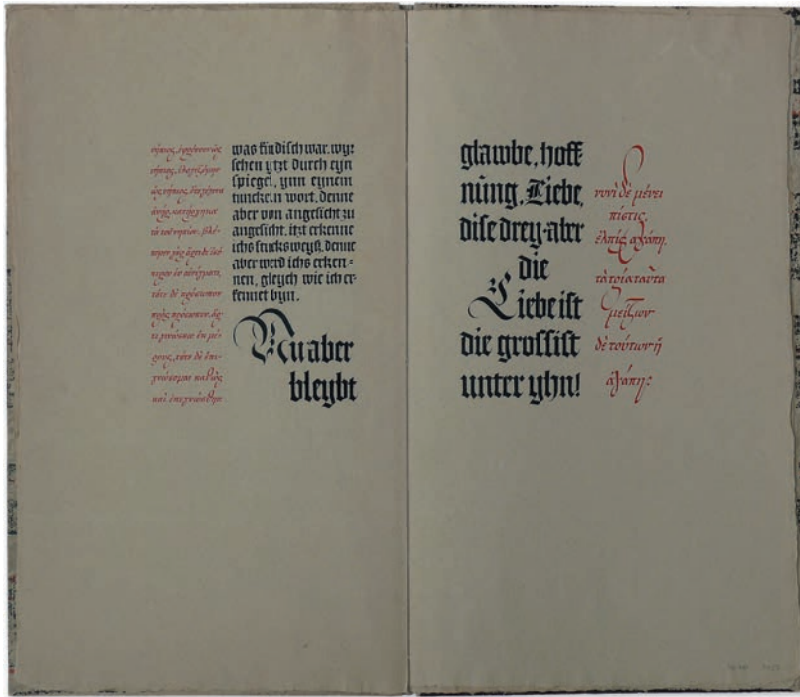 νήπιος, ἐφρόνουν ὡς
νήπιος, ἐλογιζόμην
ὡς νήπιος, ὅτε γέγονα
ἀνήρ, κατήργηκα
τὰ τοῦ νηπίου. βλέ-
πομεν γὰρ ἄρτι δι' ἐσό
πτρου ἐν αἰνίγματι,
τότε δὲ πρόσωπον
πρὸς πρόσωπον. ἄρ-
τι γινώσκω ἐκ μέ-
ρους, τότε δὲ ἐπι-
γνώσομαι καθὼς
καὶ ἐπεγνώσθην
was kindisch war. wyr
sehen ytzt durch eyn
spiegel, ynn eynem
tunckeln wort, denne
aber von angesicht zu
angesicht. itzt erkenne
ichs stucksweyß, denne
aber werd ichs erken-
nen, gleych wie ich er-
kennet byn.
Nu aber
bleybt
glawbe, hoff
nung, Liebe,
dise drey. aber
die
Liebe ist
die grossist
unter yhn!
νυνὶ δὲ μένει
πίστις,
ἐλπίς, ἀγάπη,
τὰ τρία ταῦτα
μείζων
δὲ τούτων ἡ
ἀγάπη: